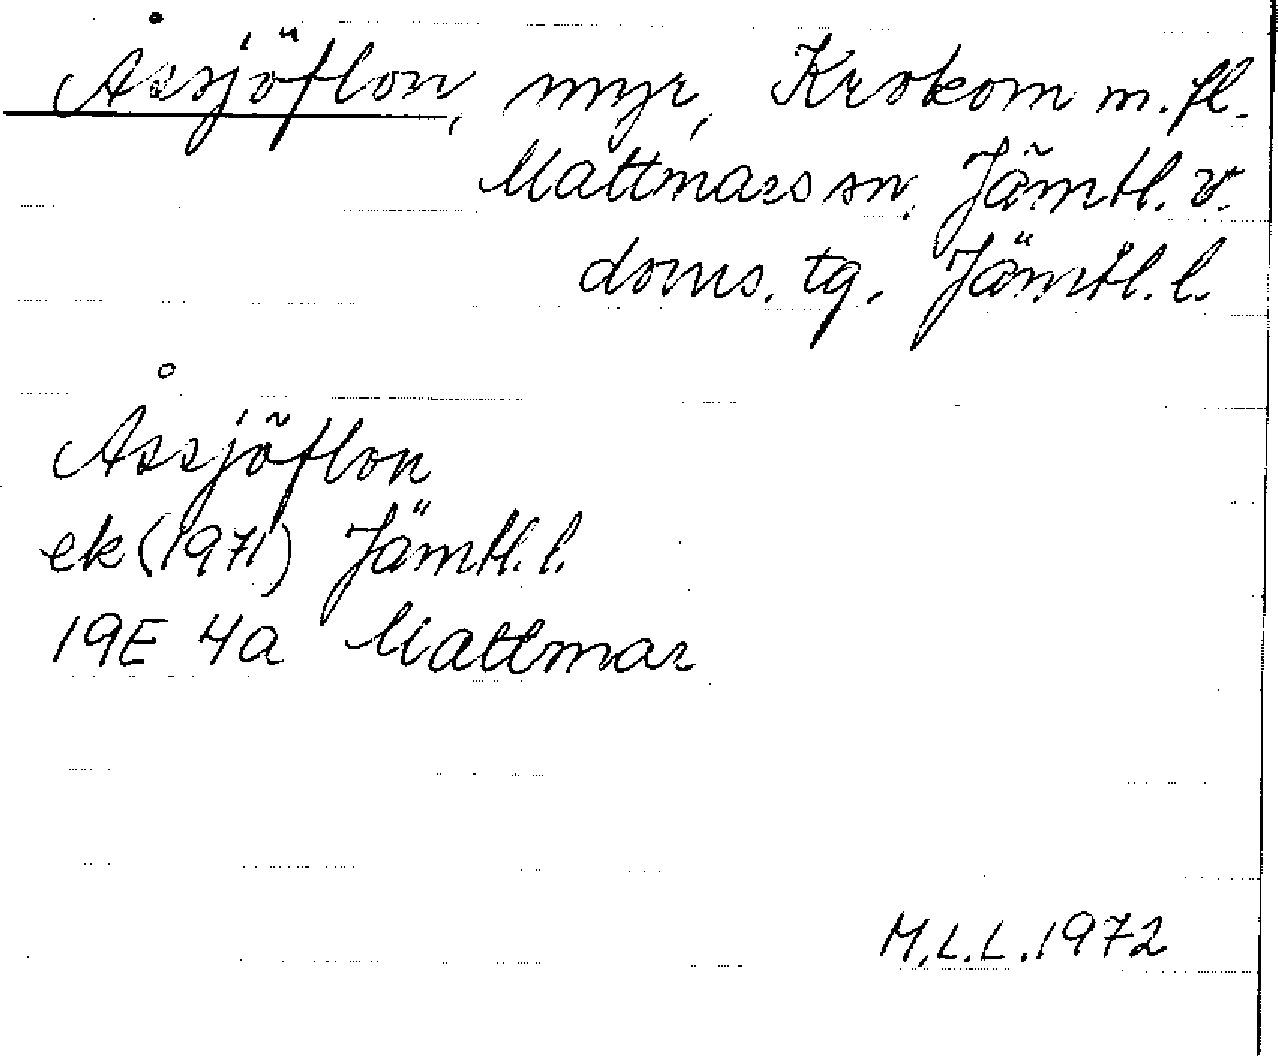 Åssjöflon, myr, Krokom m. fl.
Mattmars sn, Jämtl. v.
doms. tg. Jämtl. l.
Åssjöflon
ek (1971) Jämtl. l.
19E 4a Mattmar
M.L.L. 1972